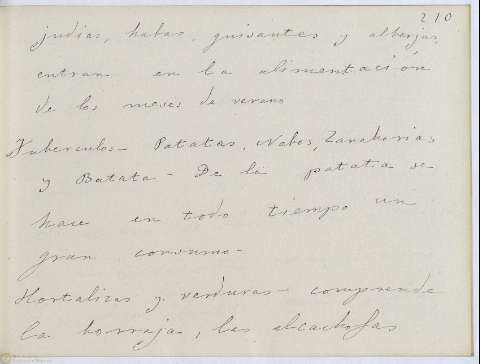 210
judias, habas, guisantes y albarjas
entran en la alimentación
de los meses de verano
Tuberculos - Patatas, Nabos, Zanahorias
y Batata - De la patata se
hace en todo tiempo un
gran consumo -
Hortalizas y verduras - comprende
la borraja, las alcachofas